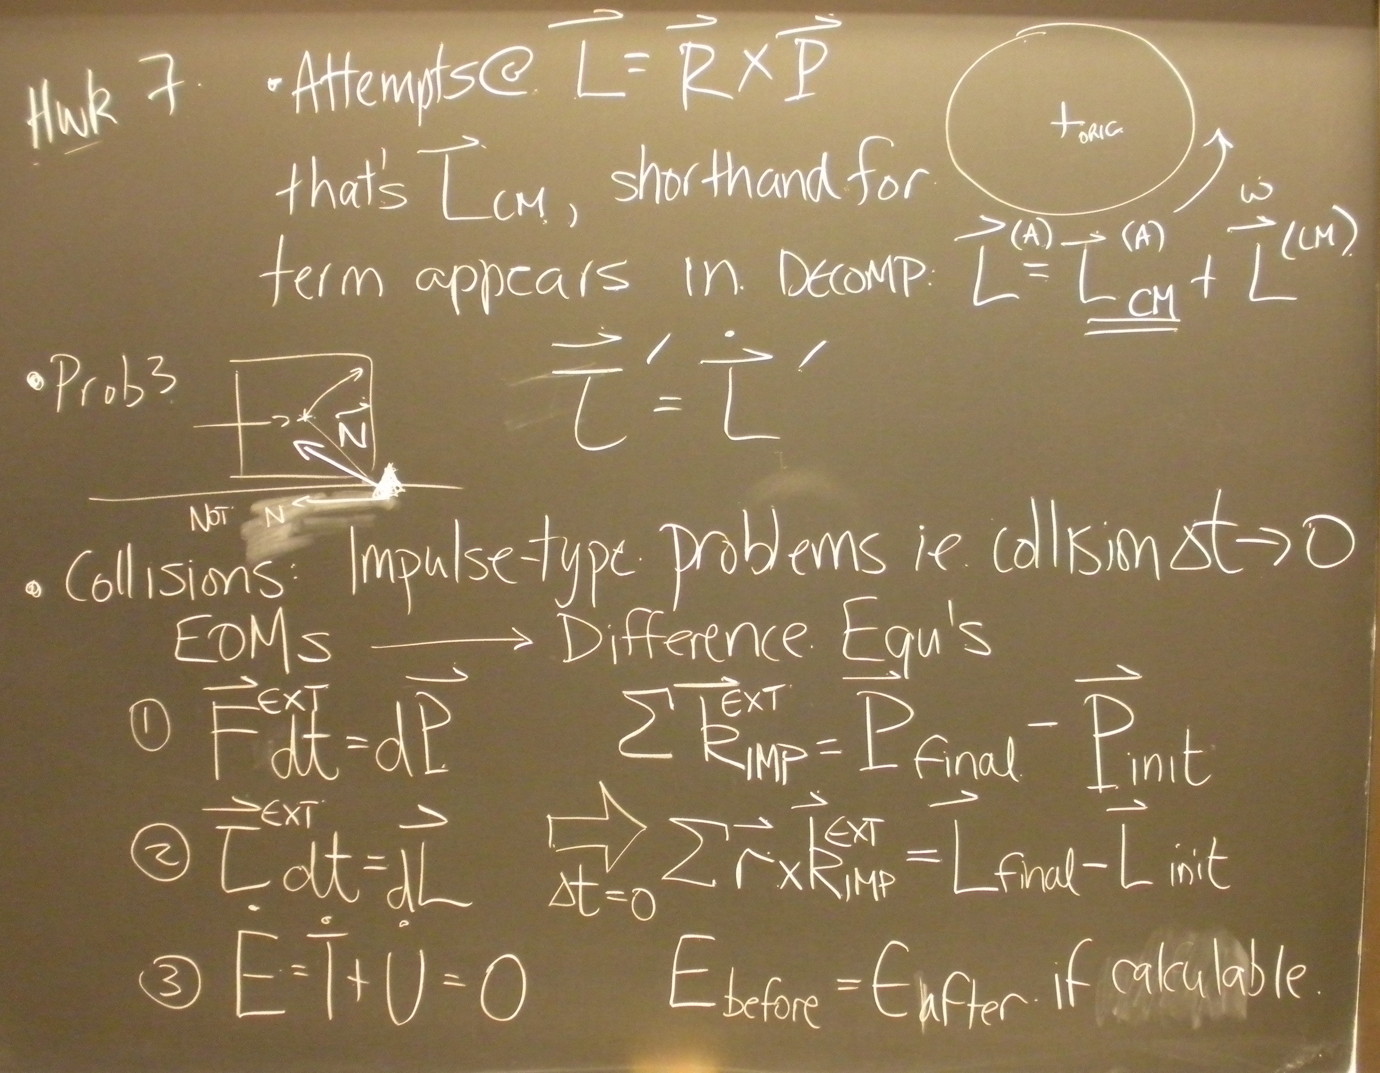 Hwk 7. • Attempts @ L⃗ = R⃗ × P⃗
+ORIG.
that's L⃗CM, shorthand for
ω
term appears in DECOMP: L⃗^(A) = L⃗CM^(A) + L⃗^(CM)
• Prob 3
N⃗
τ⃗′ = L⃗̇′
NOT N
• Collisions: Impulse-type problems ie. collision Δt → 0
EOMs → Difference Equ's
① F⃗^EXT dt = dP⃗ Σ k⃗IMP^EXT = P⃗final - P⃗init
② τ⃗^EXT dt = dL⃗ ⇒ Δt=0 Σ r⃗ × k⃗IMP^EXT = L⃗final - L⃗init
③ Ė = Ṫ + U̇ = 0 Ebefore = Eafter if calculable.